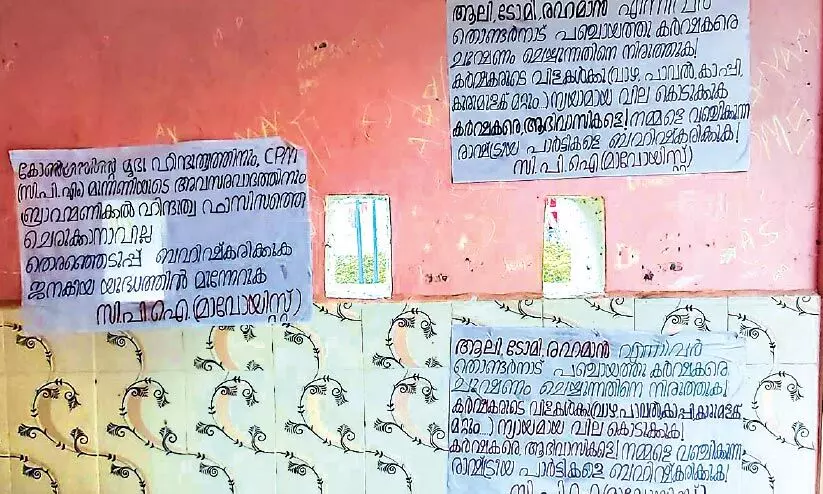 കോൺഗ്രസിന്റെ മൃദു ഹിന്ദുത്വത്തിനും, CPM
(സി.പി.എം) മുന്നണിയുടെ അവസരവാദത്തിനും
ബ്രാഹ്മണിക്കൽ ഹിന്ദുത്വ ഫാസിസത്തെ
ചെറുക്കാനാവില്ല
തെരഞ്ഞെടുപ്പ് ബഹിഷ്കരിക്കുക
ജനകീയ യുദ്ധത്തിൽ മുന്നേറുക
സി.പി.ഐ.(മാവോയിസ്റ്റ്)
ആലി, ടോമി, രഹമാൻ എന്നിവർ
തൊണ്ടർനാട് പഞ്ചായത്തു കർഷകരെ
ചൂഷണം ചെയ്യുന്നതിനെ നിരുത്തുക!
കർഷകരുടെ വിളകൾക്കു(വാഴ, പാവൽ, കാപ്പി,
കുരുമുളക് മറ്റും..) ന്യായമായ വില കൊടുക്കുക
കർഷകരെ, ആദിവാസികളെ! നമ്മളെ വഞ്ചിക്കുന്ന
രാഷ്ട്രീയ പാർട്ടികളെ ബഹിഷ്കരിക്കുക!
സി.പി.ഐ(മാവോയിസ്റ്റ്)
ആലി, ടോമി, രഹമാൻ എന്നിവർ
തൊണ്ടർനാട് പഞ്ചായത്തു കർഷകരെ
ചൂഷണം ചെയ്യുന്നതിനെ നിരുത്തുക!
കർഷകരുടെ വിളകൾക്കു(വാഴ, പാവൽ, കാപ്പി, കുരുമുളക്
മറ്റും..) ന്യായമായ വില കൊടുക്കുക!
കർഷകരെ, ആദിവാസികളെ! നമ്മളെ വഞ്ചിക്കുന്ന
രാഷ്ട്രീയ പാർട്ടികളെ ബഹിഷ്കരിക്കുക!
സി.പി.ഐ(മാവോയിസ്റ്റ്)